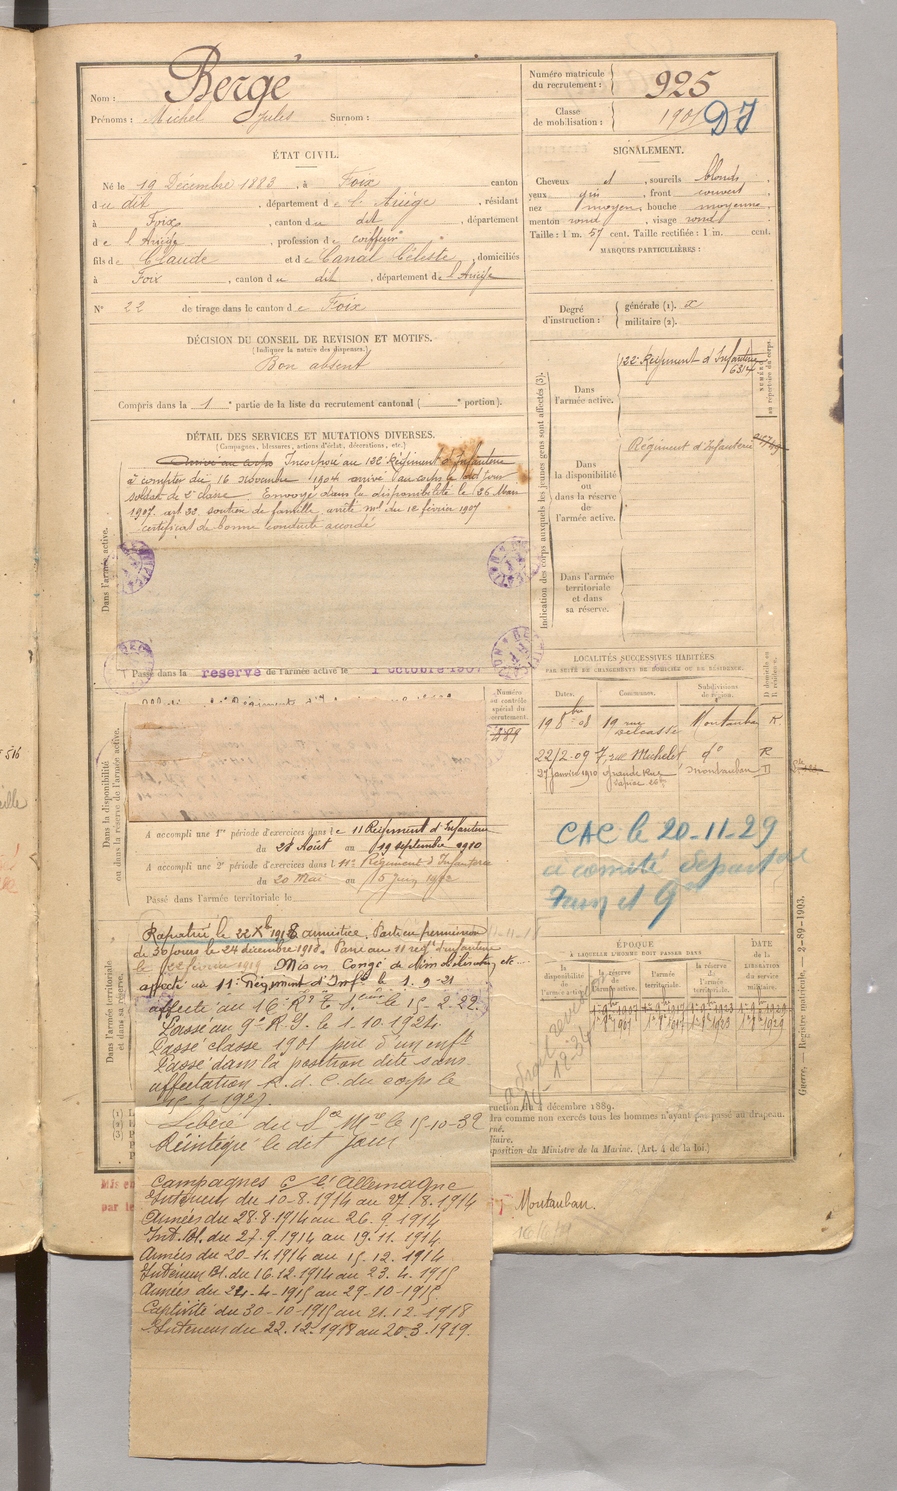 Nom : Bergé
Prénoms : Michel Jules Surnom :
Numéro matricule du recrutement : 925
Classe de mobilisation : 1901 DJ
ÉTAT CIVIL.
Né le 19 Décembre 1883, à Foix canton
du dit, département de l'Ariége, résidant
à Foix, canton du dit, département
de l'Ariége, profession de coiffeur
fils de Claude et de Canal Céleste, domiciliés
à Foix, canton du dit, département de l'Ariége
N° 22 de tirage dans le canton de Foix
SIGNALEMENT.
Cheveux et, sourcils blonds
yeux gris, front couvert
nez moyen, bouche moyenne
menton rond, visage rond
Taille : 1 m. 57 cent. Taille rectifiée : 1 m. cent.
MARQUES PARTICULIÈRES :
Degré d'instruction : générale (1). x
militaire (2).
DÉCISION DU CONSEIL DE REVISION ET MOTIFS.
(Indiquer la nature des dispenses.)
Bon absent
Compris dans la 1e partie de la liste du recrutement cantonal ( e portion).
DÉTAIL DES SERVICES ET MUTATIONS DIVERSES.
(Campagnes, blessures, actions d'éclat, décorations, etc.)
Dans l'armée active.
Arrivé au corps Incorporé au 122e Régiment d'Infanterie
à compter du 16 novembre 1904 arrivé au corps le dit jour
soldat de 2e classe. Envoyé dans la disponibilité le 26 Mai
1907. art 22 soutien de famille, arrêté mel du 12 février 1907
certificat de bonne conduite accordé
Passé dans la réserve de l'armée active le 1 Octobre 1907
Indication des corps auxquels les jeunes gens sont affectés (3).
Dans l'armée active.
122e Régiment d'Infanterie
6314
NUMÉRO au répertoire du corps.
Dans la disponibilité ou dans la réserve de l'armée active.
Régiment d'Infanterie
Dans l'armée territoriale et dans sa réserve.
Dans la disponibilité ou dans la réserve de l'armée active.
Numéro au contrôle spécial du recrutement.
489
A accompli une 1re période d'exercices dans le 11 Régiment d'Infanterie
du 28 Août au 19 septembre 1910
A accompli une 2e période d'exercices dans l 11e Régiment d'Infanterie
du 20 Mai au 15 Juin 1912
Passé dans l'armée territoriale le
LOCALITÉS SUCCESSIVES HABITÉES
PAR SUITE DE CHANGEMENTS DE DOMICILE OU DE RÉSIDENCE.
Dates. Communes. Subdivisions de région. D domicile ou R résidence.
19 8bre 08 19 rue Delcassé Montauban R
22/2-09 7 rue Michelet do R
27 janvier 1910 Grande Rue Sapiac Montauban D
CAC le 20-11-29
Dans l'armée territoriale et dans sa réserve.
Rapatrié le 22 Xbre 1918 armistice. Parti en permission
de 30 jours le 24 décembre 1918. Passé au 11 regt d'infanterie
le 22 février 1919 Mis en Congé de démobilisation, etc...
affecté au 11e Régiment d'Infrie le 1. 9-21
affecté au 16e le 15-2-22.
Passé au 9e R.G. le 1-10-1924.
Passé classe 1901 père d'un enft
Passé dans la position dite sans
affectation R. d. C. du corps le
15-1-1927.
Libéré du Sce Mre le 15-10-32
Réintégré le dit jour
ÉPOQUE
À LAQUELLE L'HOMME DOIT PASSER DANS
DATE de la LIBÉRATION DU SERVICE militaire.
la disponibilité de l'armée active. la réserve de l'armée active. l'armée territoriale. la réserve de l'armée territoriale.
ruction du 4 décembre 1889.
dra comme non exercés tous les hommes n'ayant pas passé au drapeau.
position du Ministre de la Marine. (Art. 4 de la loi.)
Guerre. — Registre matricule. — 2-89-1903.
Mis en
par le
Montauban.
Campagnes c/ l'Allemagne
Intérieur du 10-8.1914 au 27/8.1914
Armées du 28.8.1914 au 26.9.1914
Int. Bl. du 27.9.1914 au 19.11.1914
Armées du 20-11.1914 au 15.12.1914
Intérieur Bl. du 16.12.1914 au 23.4.1915
Armées du 24-4-1915 au 29-10-1915
Captivité du 30-10-1915 au 21.12-1918
Intérieur du 22.12.1918 au 20.3.1919.